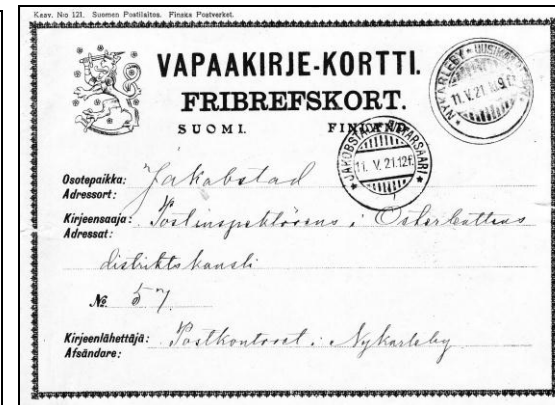 Kaav. N:o 121. Suomen Postilaitos. Finska Postverket.
VAPAAKIRJE-KORTTI.
FRIBREFSKORT.
SUOMI. FINLAND.
NYKARLEBY * UUSIKAARLEPYY *
11. V. 21
JAKOBSTAD * PIETARSAARI *
11. V. 21.12
Osotepaikka: Jakobstad
Adressort:
Kirjeensaaja: Postinspektörens i Österbottens
Adressat:
distriktskansli
No. 57
Kirjeenlähettäjä: Postkontoret i Nykarleby
Afsändare: